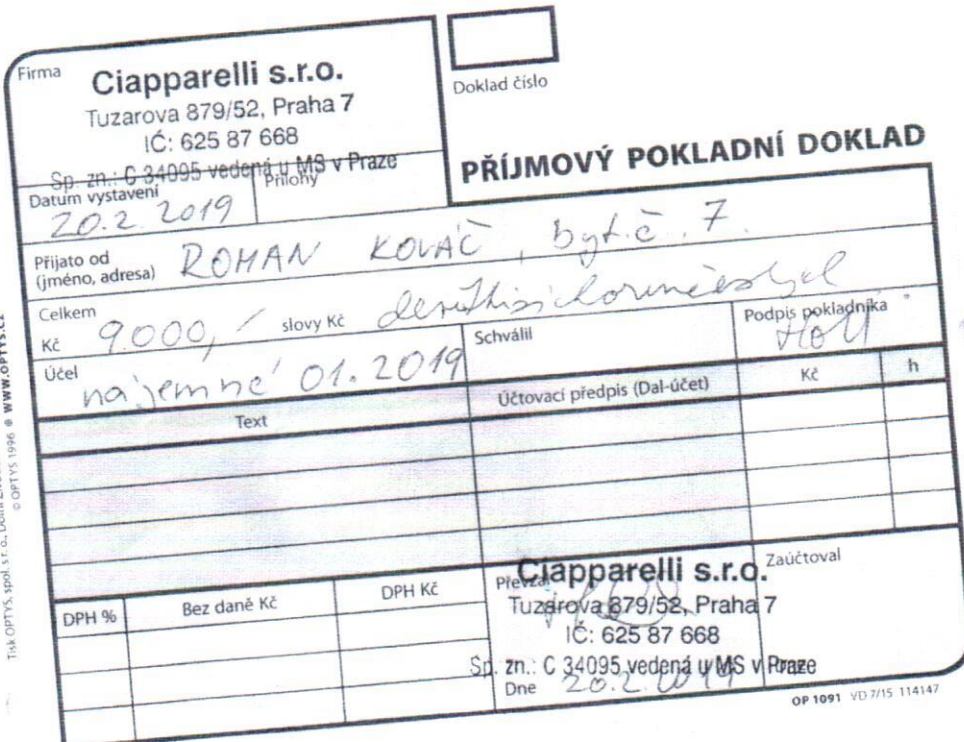 Firma
Ciapparelli s.r.o.
Tuzarova 879/52, Praha 7
IČ: 625 87 668
Sp. zn.: C 34095 vedená u MS v Praze
Doklad číslo
PŘÍJMOVÝ POKLADNÍ DOKLAD
Datum vystavení Přílohy
20.2. 2019
Přijato od
(jméno, adresa) ROMAN KOVAČ, byt.č. 7.
Celkem
Kč 9.000,- slovy Kč
Schválil
Podpis pokladníka
Účel
nájemné 01.2019
Text Účtovací předpis (Dal-účet) Kč h
DPH % Bez daně Kč DPH Kč
Převzal
Zaúčtoval
Ciapparelli s.r.o.
Tuzarova 879/52, Praha 7
IČ: 625 87 668
Sp. zn.: C 34095 vedená u MS v Praze
Dne 20.2. 2019
OP 1091 VD 7/15 114147
Tisk OPTYS, spol. s r. o.,
© OPTYS 1996 WWW.OPTYS.CZ